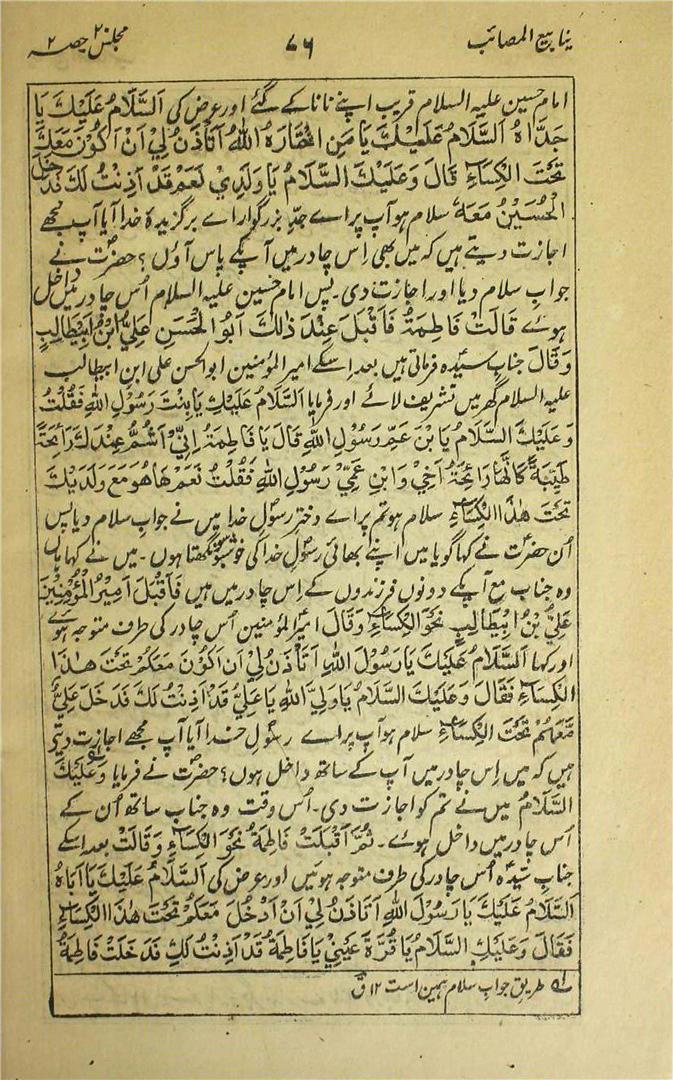 ینابیع المصائب
۷۶
مجلس ۲ حصہ ۲
امام حسین علیہ السلام قریب اپنے نانا کے گئے اور عرض کی اَلسَّلَامُ عَلَیْكَ یَا
جَدَّاهُ اَلسَّلَامُ عَلَیْكَ یَا مَنِ اخْتَارَهُ اللهُ اَتَأْذَنُ لِيْ اَنْ اَکُوْنَ مَعَكَ
تَحْتَ الْکِسَاءِ قَالَ وَعَلَیْكَ السَّلَامُ یَا وَلَدِيْ نَعَمْ قَدْ اَذِنْتُ لَكَ فَدَخَلَ
الْحُسَیْنُ مَعَهٗ سلام ہو آپ پر اے جدِّ بزرگوار اے برگزیدۂ خدا آیا آپ مجھے
اجازت دیتے ہیں کہ میں بھی اِس چادر میں آپکے پاس آؤں ؟ حضرتؐ نے
جوابِ سلام دیا اور اجازت دی۔ پس امام حسین علیہ السلام اُس چادر میں داخل
ہوئے قَالَتْ فَاطِمَةُ فَاَقْبَلَ عِنْدَ ذٰلِكَ اَبُو الْحَسَنِ عَلِيُّ ابْنُ ابیطَالِبٍ
وَقَالَ جنابِ سیّدہ فرماتی ہیں بعد اِسکے امیر المؤمنین ابوالحسن علی ابن ابیطالب
علیہ السلام گھر میں تشریف لائے اور فرمایا اَلسَّلَامُ عَلَیْكِ یَا بِنْتَ رَسُوْلِ اللهِ فَقُلْتُ
وَعَلَیْكَ السَّلَامُ یَا بْنَ عَمِّ رَسُوْلِ اللهِ قَالَ یَا فَاطِمَةُ اِنِّيْ اَشُمُّ عِنْدَكِ رَائِحَةً
طَیِّبَةً کَاَنَّهَا رَائِحَةُ اَخِيْ وَابْنِ عَمِّيْ رَسُوْلِ اللهِ فَقُلْتُ نَعَمْ هَا هُوَ مَعَ وَلَدَیْكَ
تَحْتَ هٰذَا الْکِسَاءِ سلام ہو تم پر اے دختر رسولِ خدا میں نے جوابِ سلام دیا پس
اُن حضرت نے کہا گویا میں اپنے بھائی رسولِ خدا کی خوشبو سونگھتا ہوں۔ میں نے کہا ہاں
وہ جناب مع آپکے دونوں فرزندوں کے اِس چادر میں ہیں فَاَقْبَلَ اَمِیْرُ الْمُؤْمِنِیْنَ
عَلِيُّ بْنُ ابیطَالِبٍ نَحْوَ الْکِسَاءِ وَقَالَ امیر المؤمنین اُس چادر کی طرف متوجہ ہوئے
اور کہا اَلسَّلَامُ عَلَیْكَ یَا رَسُوْلَ اللهِ اَتَأْذَنُ لِيْ اَنْ اَکُوْنَ مَعَکُمْ تَحْتَ هٰذَا
الْکِسَاءِ فَقَالَ وَعَلَیْكَ السَّلَامُ یَا وَلِيَّ اللهِ یَا عَلِيُّ قَدْ اَذِنْتُ لَكَ فَدَخَلَ عَلِيٌّ
مَعَهُمْ تَحْتَ الْکِسَاءِ سلام ہو آپ پر اے رسولِ خدا آیا آپ مجھے اجازت دیتے
ہیں کہ میں اِس چادر میں آپ کے ساتھ داخل ہوں؟ حضرتؐ نے فرمایا وَعَلَیْكَ
السَّلَامُ میں نے تم کو اجازت دی۔ اُس وقت وہ جناب ساتھ اُن کے
اُس چادر میں داخل ہوئے۔ ثُمَّ اَقْبَلَتْ فَاطِمَةُ نَحْوَ الْکِسَاءِ وَقَالَتْ بعد اِسکے
جنابِ سیّدہ اُس چادر کی طرف متوجہ ہوئیں اور عرض کی اَلسَّلَامُ عَلَیْكَ یَا اَبَاهُ
اَلسَّلَامُ عَلَیْكَ یَا رَسُوْلَ اللهِ اَتَأْذَنُ لِيْ اَنْ اَدْخُلَ مَعَکُمْ تَحْتَ هٰذَا الْکِسَاءِ
فَقَالَ وَعَلَیْكِ السَّلَامُ یَا قُرَّةَ عَیْنِيْ یَا فَاطِمَةُ قَدْ اَذِنْتُ لَكِ فَدَخَلَتْ فَاطِمَةُ
؎۱ طریق جوابِ سلام ہمین است ۱۲ ق